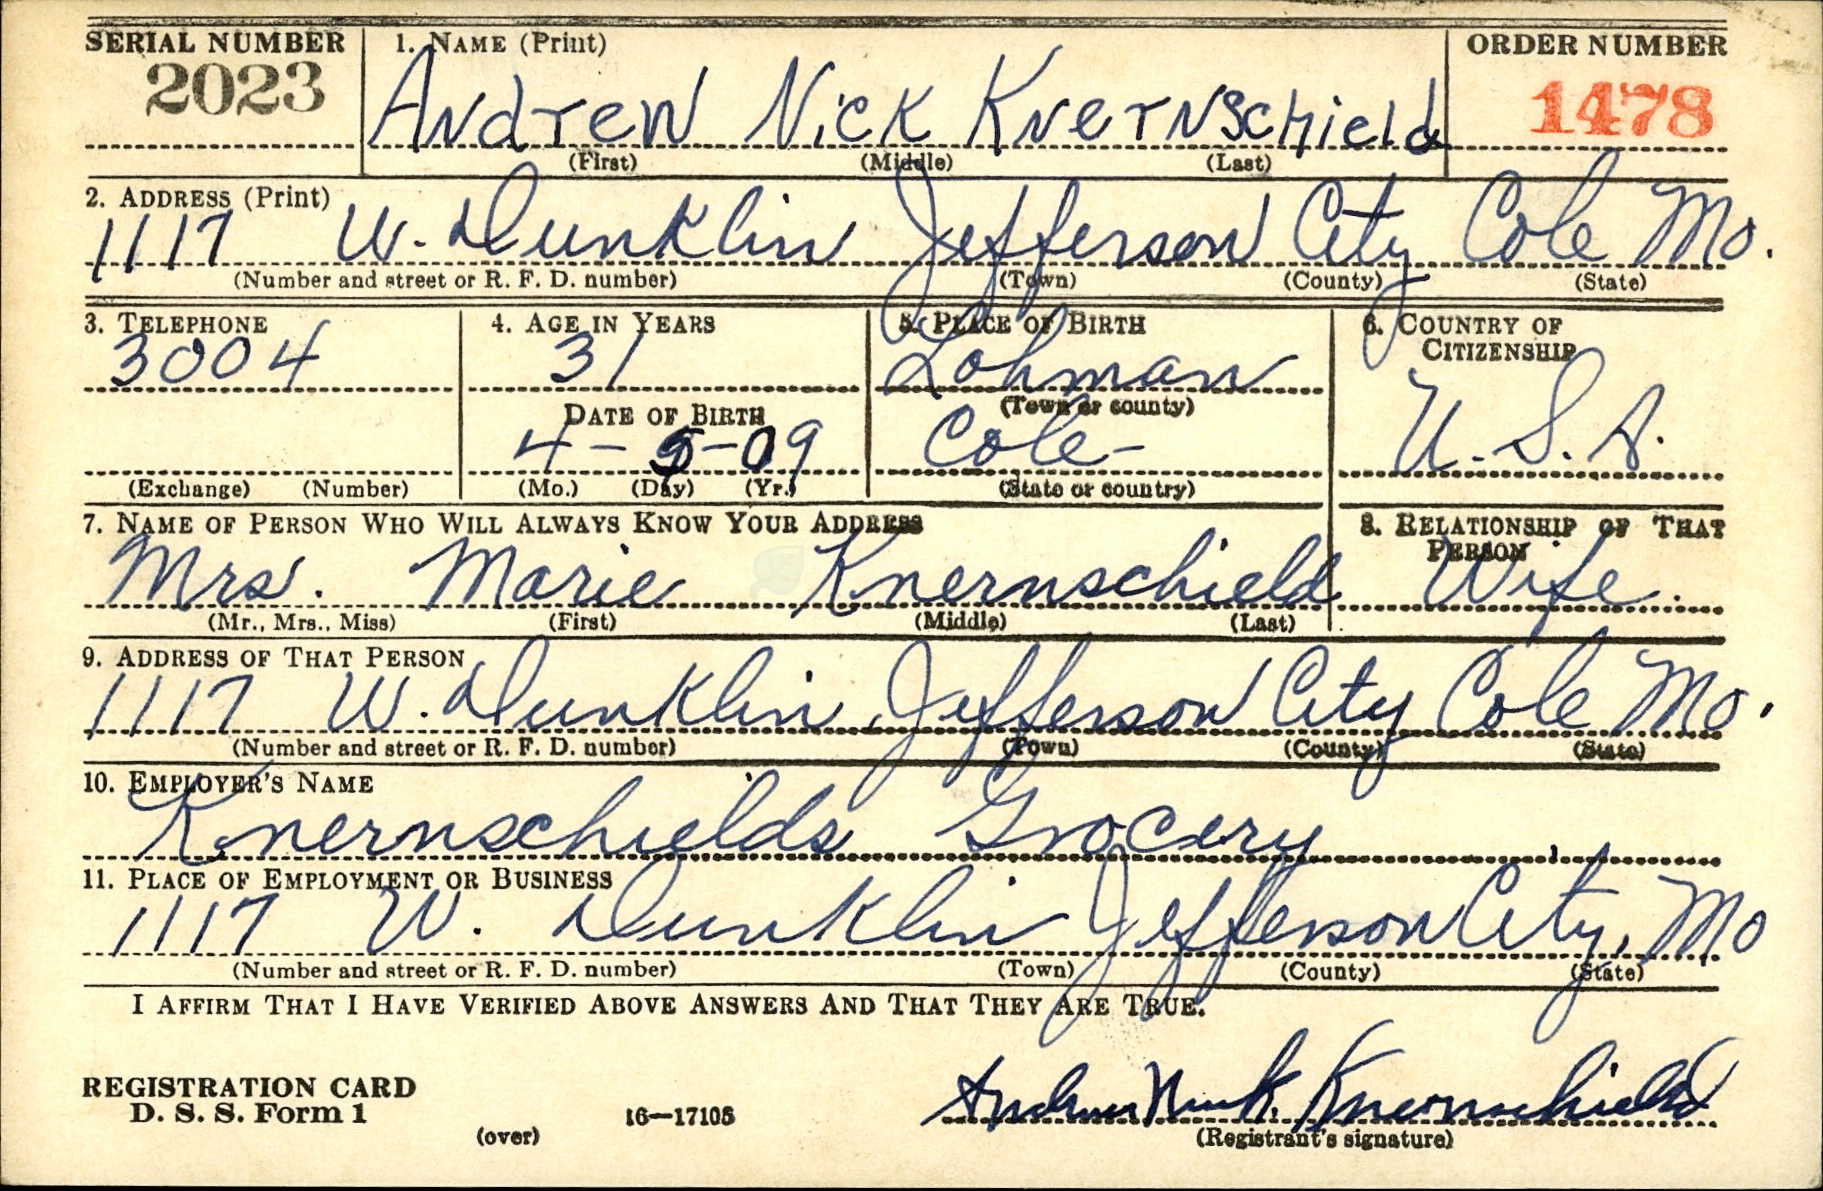 SERIAL NUMBER 1. NAME (Print) ORDER NUMBER
2023 Andrew Nick Knernschield 1478
(First) (Middle) (Last)
2. ADDRESS (Print)
1117 W. Dunklin Jefferson City Cole Mo.
(Number and street or R. F. D. number) (Town) (County) (State)
3. TELEPHONE 4. AGE IN YEARS 5. PLACE OF BIRTH 6. COUNTRY OF CITIZENSHIP
3004 31 Lohman
(Town or county)
DATE OF BIRTH
4-5-09 Cole- U.S.A.
(Exchange) (Number) (Mo.) (Day) (Yr.) (State or country)
7. NAME OF PERSON WHO WILL ALWAYS KNOW YOUR ADDRESS 8. RELATIONSHIP OF THAT PERSON
Mrs. Marie Knernschield Wife.
(Mr., Mrs., Miss) (First) (Middle) (Last)
9. ADDRESS OF THAT PERSON
1117 W. Dunklin Jefferson City Cole Mo.
(Number and street or R. F. D. number) (Town) (County) (State)
10. EMPLOYER'S NAME
Knernschields Grocery
11. PLACE OF EMPLOYMENT OR BUSINESS
1117 W. Dunklin Jefferson City, Mo
(Number and street or R. F. D. number) (Town) (County) (State)
I AFFIRM THAT I HAVE VERIFIED ABOVE ANSWERS AND THAT THEY ARE TRUE.
REGISTRATION CARD
D. S. S. Form 1 16—17105 Andrew Nick Knernschield
(over) (Registrant's signature)